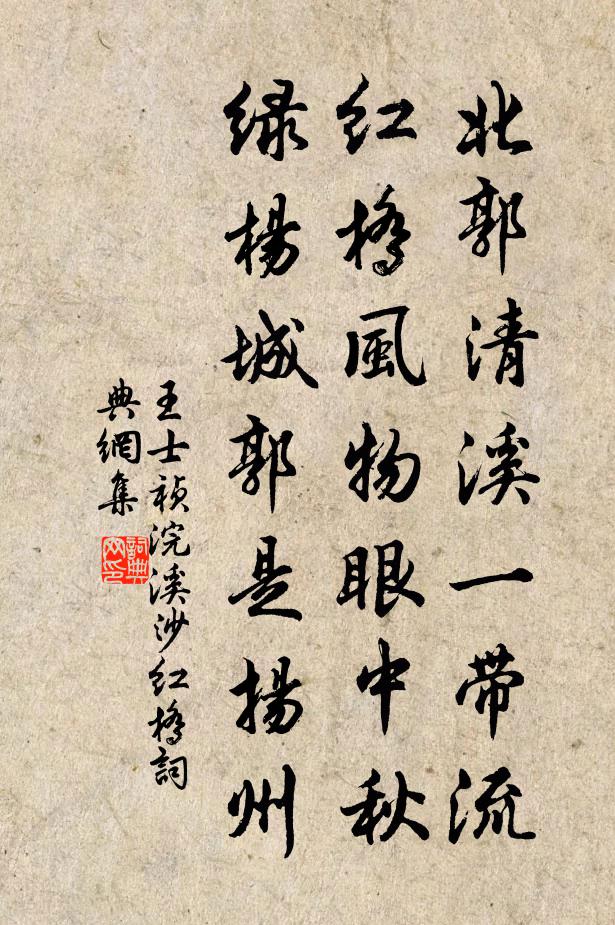 北郭清溪一带流
红桥風物眼中秋
绿楊城郭是揚州
王士祯浣溪沙红桥詞
典網集
詞典网印